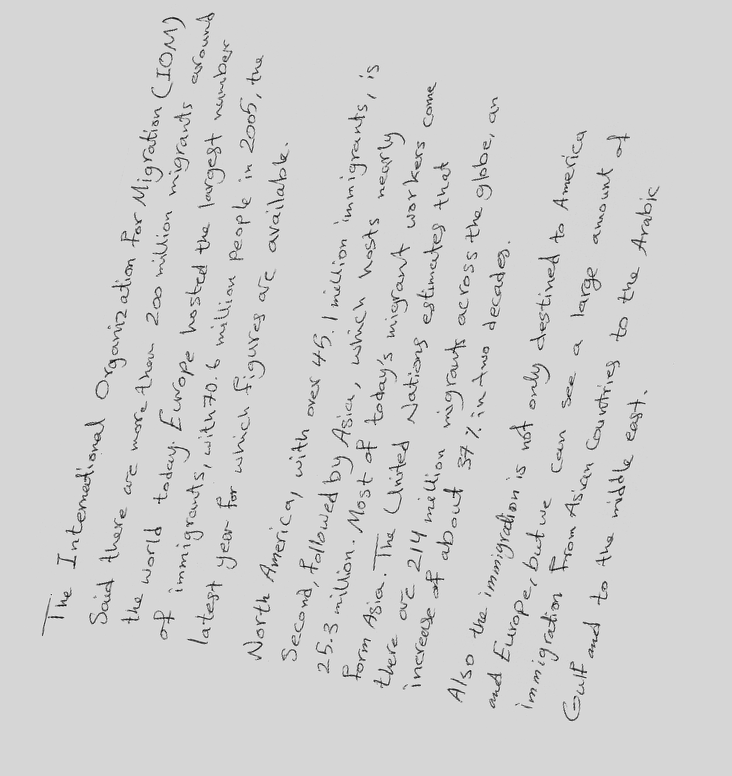 The International Organization For Migration (IOM)
Said there are more than 200 million migrants around
the world today. Europe hosted the largest number
of immigrants, with 70.6 million people in 2005, the
latest year for which figures are available.
North America, with over 45.1 million immigrants, is
Second, followed by Asia, which hosts nearly
25.3 million. Most of today's migrant workers come
form Asia. The United Nations estimates that
there are 214 million migrants across the globe, an
increase of about 37% in two decades.
Also the immigration is not only destined to America
and Europe, but we can see a large amount of
immigration From Asian Countries to the Arabic
Gulf and to the middle east.